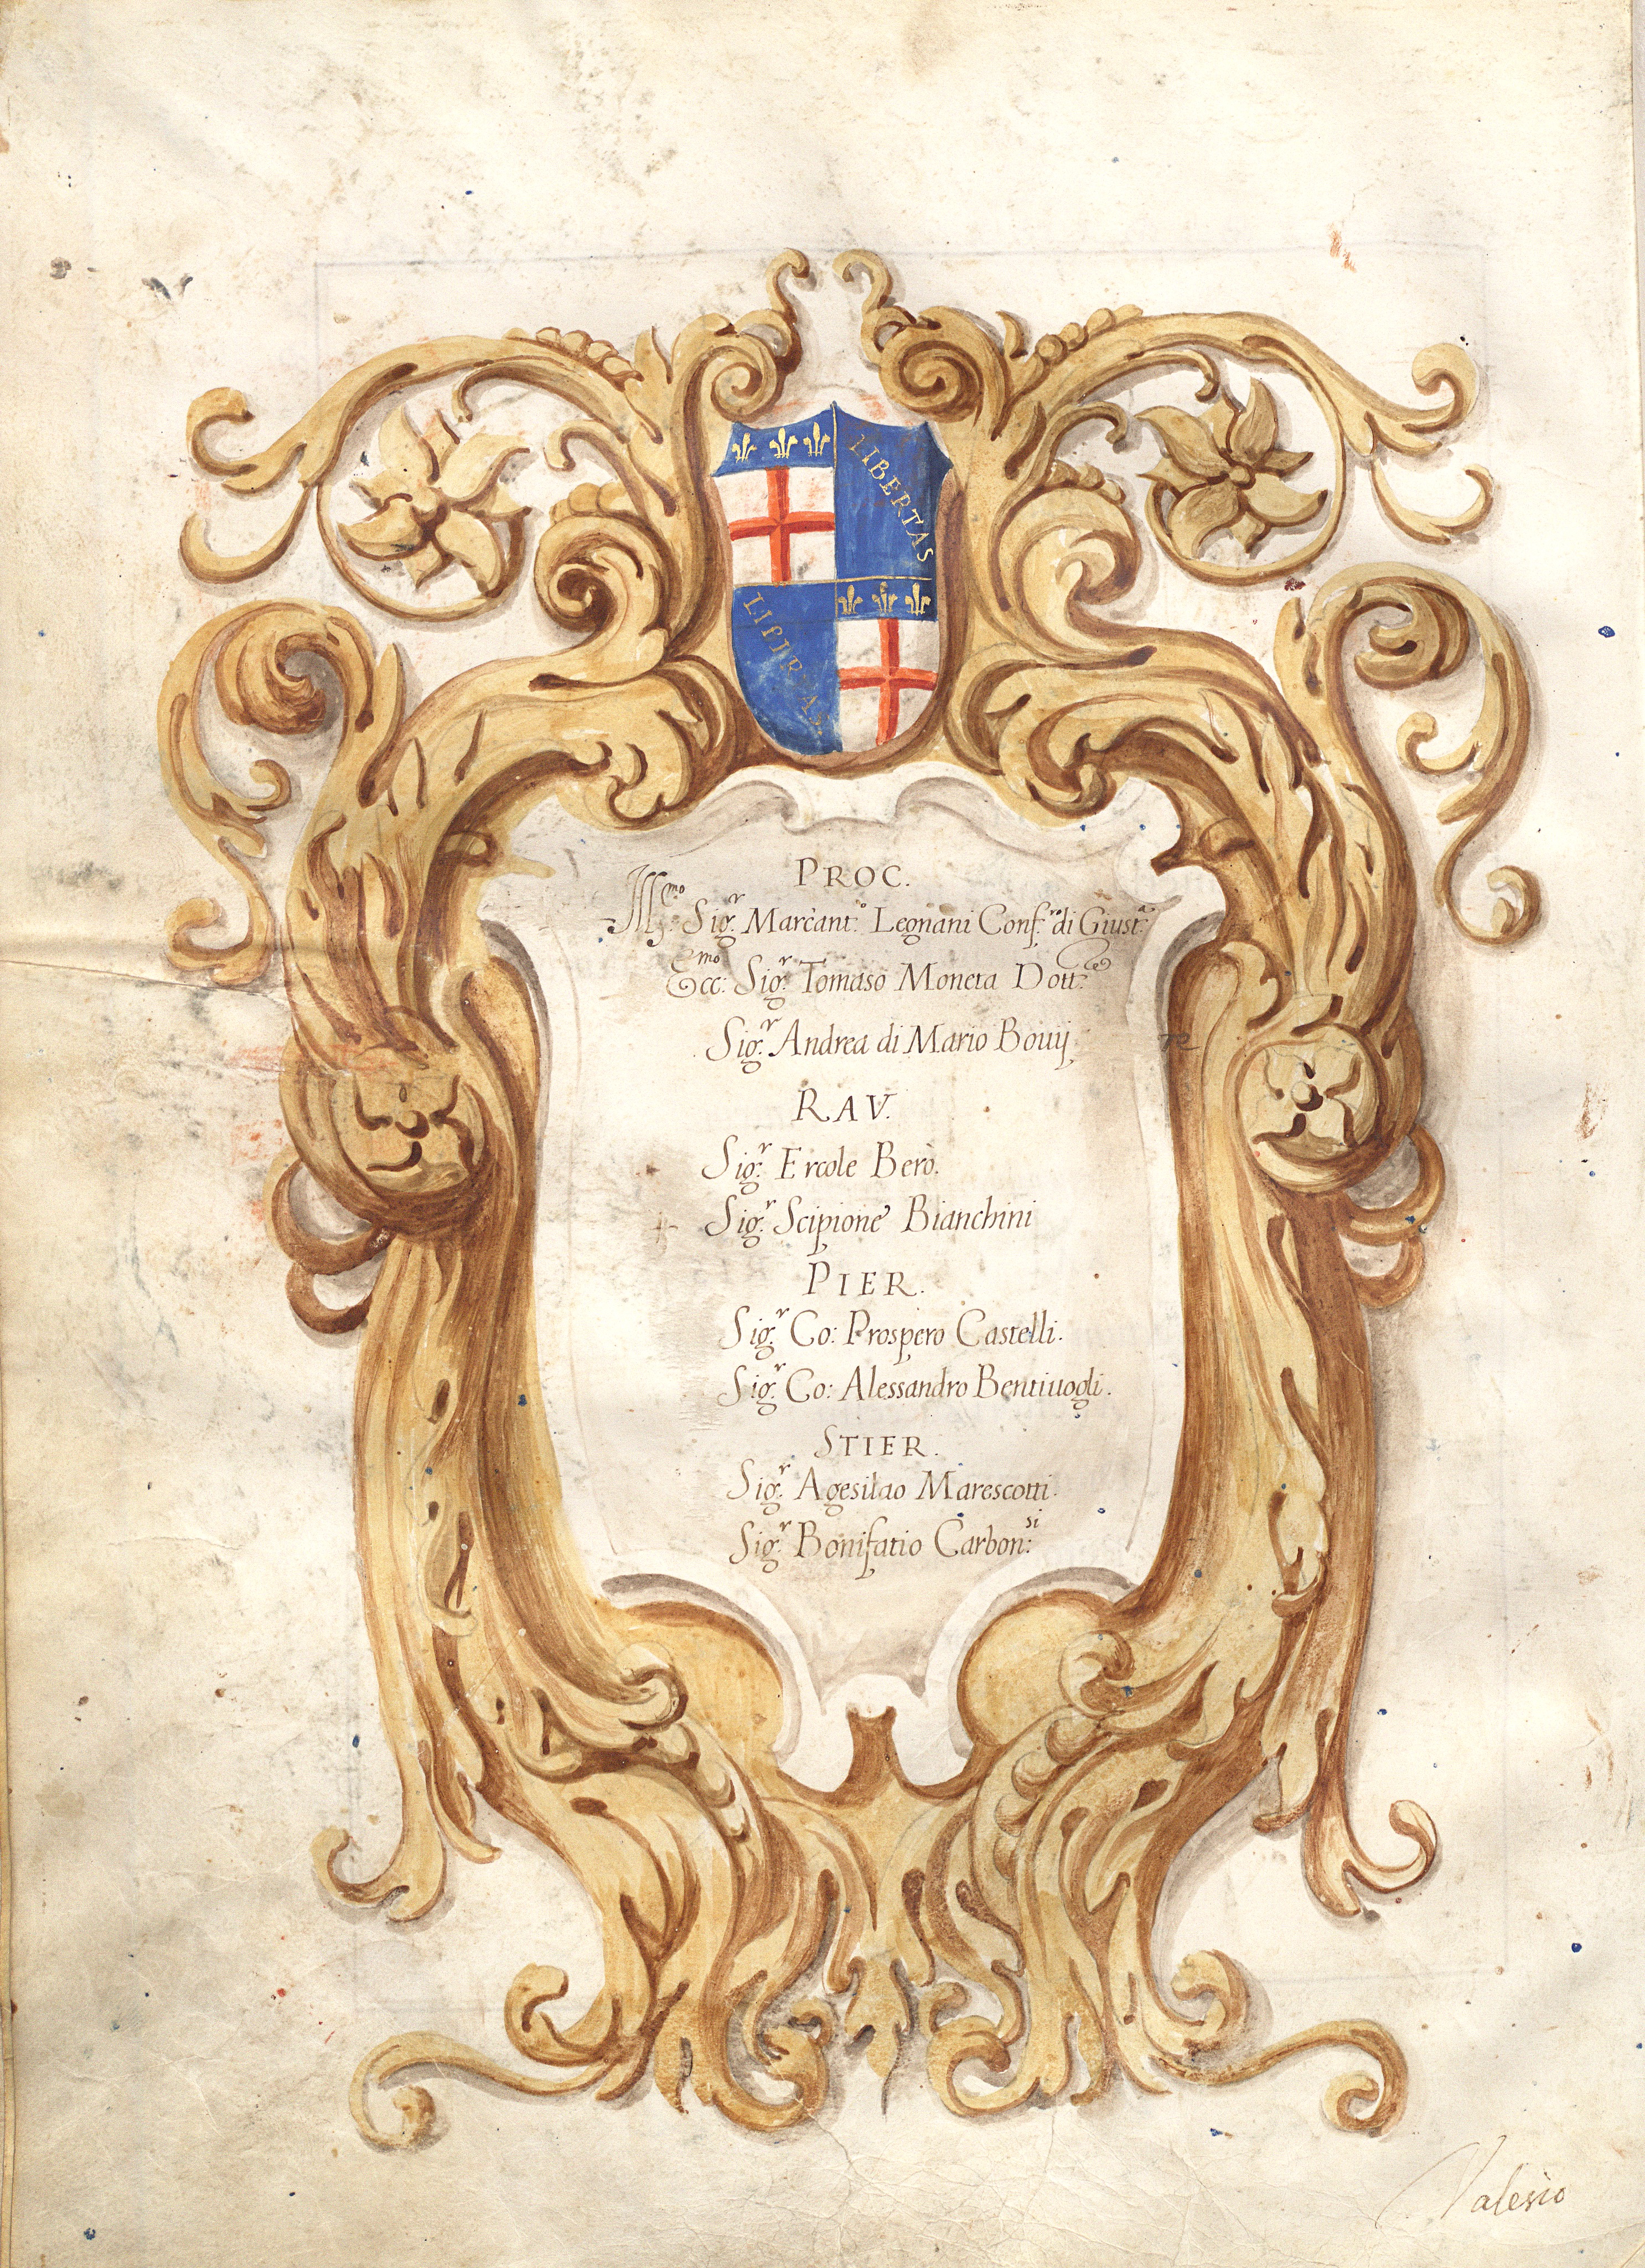 LIBERTAS
LIBERTAS
PROC.
Ill.mo Sig.r Marcant.o Legnani Conf.ro di Giust.a
Ecc:mo Sig.r Tomaso Moneta Dott.re
Sig.r Andrea di Mario Bouij
RAV.
Sig.r Ercole Berò.
Sig.r Scipione Bianchini
PIER.
Sig.r Co: Prospero Castelli.
Sig.r Co: Alessandro Bentiuogli.
STIER.
Sig.r Agesilao Marescotti.
Sig.r Bonifatio Carbon:si
Valesio